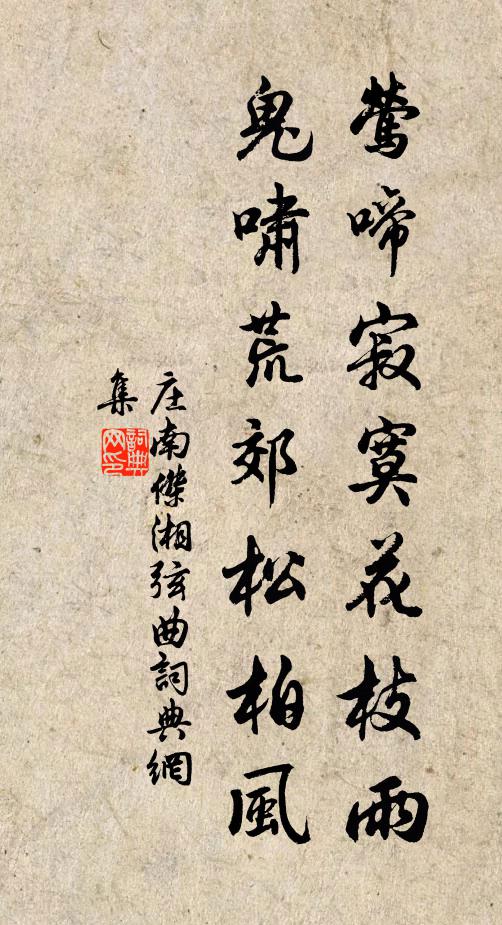 鶯啼寂寞花枝雨
鬼嘯荒郊松柏風
庄南傑湘弦曲詞典網
集
詞典
网印